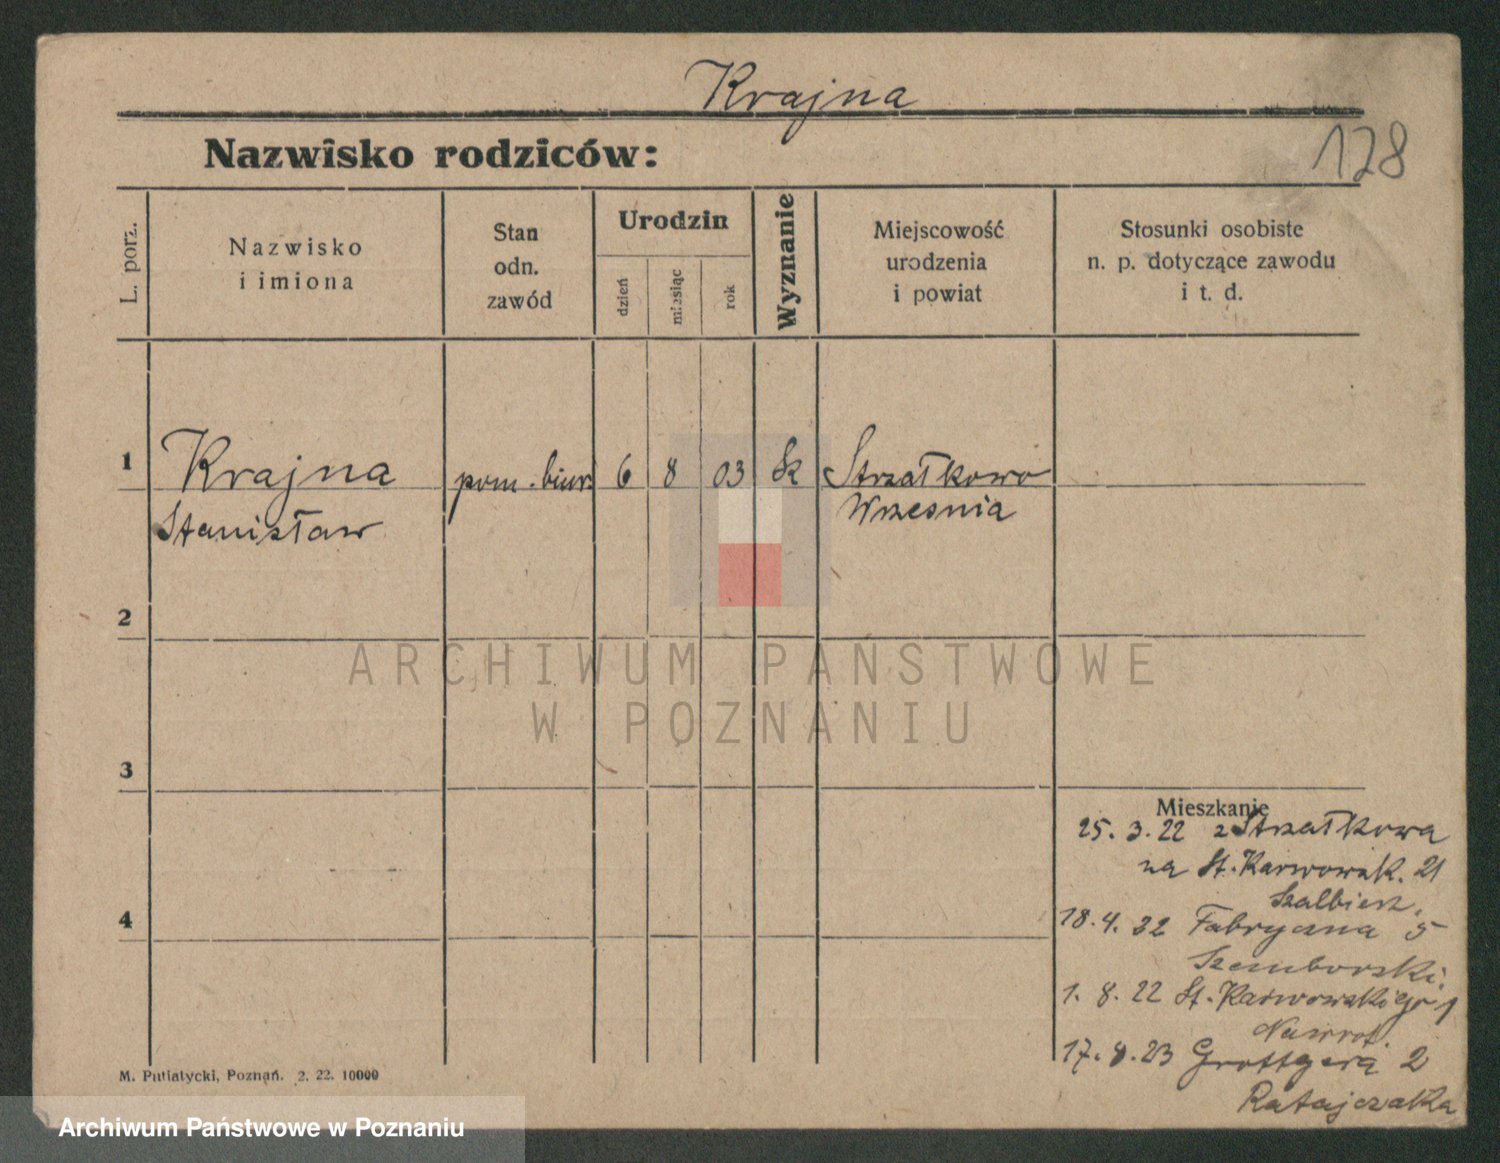 Krajna
Nazwisko rodziców:
128
L. porz.
Nazwisko
i imiona
Stan
odn.
zawód
Urodzin
dzień
miesiąc
rok
Wyznanie
Miejscowość
urodzenia
i powiat
Stosunki osobiste
n. p. dotyczące zawodu
i t. d.
1
Krajna
Stanisław
pom. biur.
6
8
03
Strzałkowo
Wrzesnia
2
ARCHIWUM PAŃSTWOWE
W POZNANIU
3
Mieszkanie
25. 3. 22 z Strzałkowa
na St. Karwowsk. 21
4
18. 4. 22 Fabryczna 5
Szemborski.
1. 8. 22 St. Karwowskiego 1
Nawrot.
17. 8. 23 Grottgera 2
Ratajczaka
M. Putiatycki, Poznań. 2. 22. 10000
Archiwum Państwowe w Poznaniu